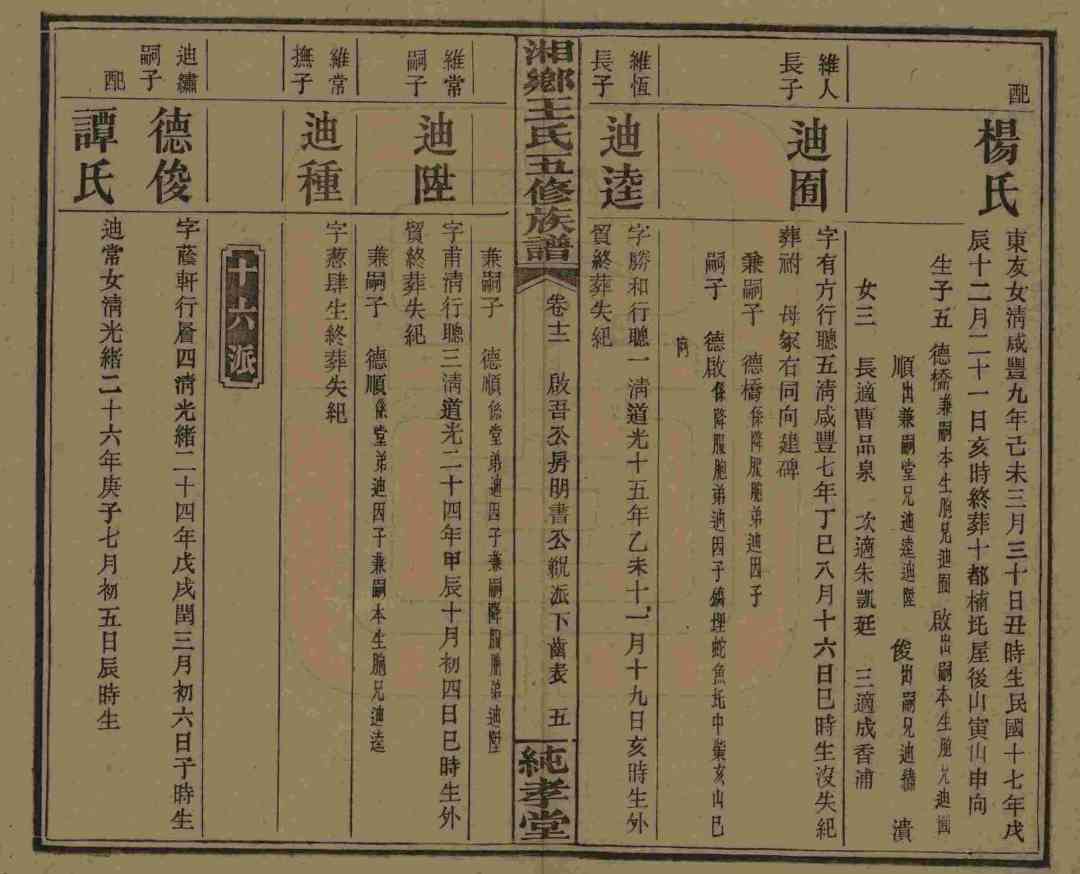 配
楊氏
東友女淸咸豐九年己未三月三十日丑時生民國十七年戊
辰十二月二十一日亥時終葬十都楠圫屋後山寅山申向
生子五　德橋兼嗣本生胞兄迪囿　啟出嗣本生胞兄迪囿
順出兼嗣堂兄迪逵迪陞　俊出嗣兄迪繡　瀆
女三　長適曹品泉　次適朱凱廷　三適成香浦
維人
長子
迪囿
字有方行聰五淸咸豐七年丁巳八月十六日巳時生沒失紀
葬祔　母冢右同向建碑
兼嗣子　德橋係降服胞弟迪因子
嗣子　德啟係降服胞弟迪因子　蛇魚圫中　亥山巳
向
維恆
長子
迪逵
字勝和行聰一淸道光十五年乙未十一月十九日亥時生外
貿終葬失紀
湘鄉王氏五修族譜
卷十二　啟吾公房明書公　派下齒表　五
純孝堂
兼嗣子　德順係堂弟迪因子兼嗣降服胞弟迪陞
維常
嗣子
迪陞
字甫淸行聰三淸道光二十四年甲辰十月初四日巳時生外
貿終葬失紀
兼嗣子　德順係堂弟迪因子兼嗣本生胞兄迪逵
維常
撫子
迪種
字蔥肆生終葬失紀
十六派
迪繡
嗣子
德俊
字蔭軒行層四淸光緒二十四年戊戌閏三月初六日子時生
配
譚氏
迪常女淸光緒二十六年庚子七月初五日辰時生